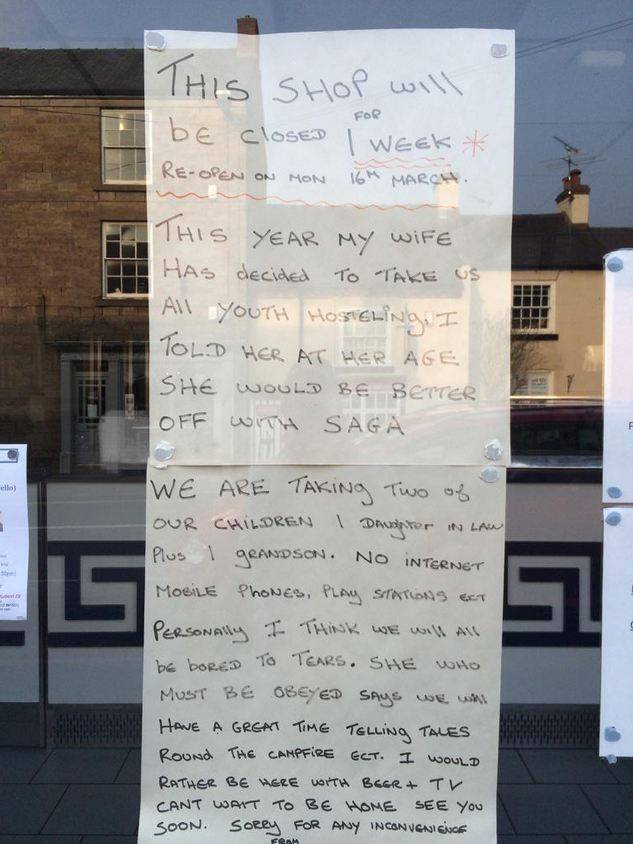 THIS SHOP will
FOR
be closed 1 WEEK *
RE-OPEN ON MON 16TH MARCH.
THIS YEAR MY WIFE
HAS decided TO TAKE US
All YOUTH HOSTELING. I
TOLD HER AT HER AGE
SHE WOULD BE BETTER
OFF WITH SAGA
WE ARE TAKING TWO of
OUR CHILDREN 1 DAUGHTER IN LAW
Plus 1 gRANDSON. NO INTERNET
MOBILE PHONES, PLAY STATIONS ECT
PERSONAlly I THINK WE will All
be bORED TO TEARS. SHE WHO
MUST BE OBEYED SAYS WE will
HAVE A GREAT TIME TELLING TALES
ROUND THE CAMPFIRE ECT. I WOULD
RATHER BE HERE WITH BEER + TV
CANT WAIT TO BE HOME SEE YOU
SOON. SORRY FOR ANY INCONVENIENCE
FROM
ello)